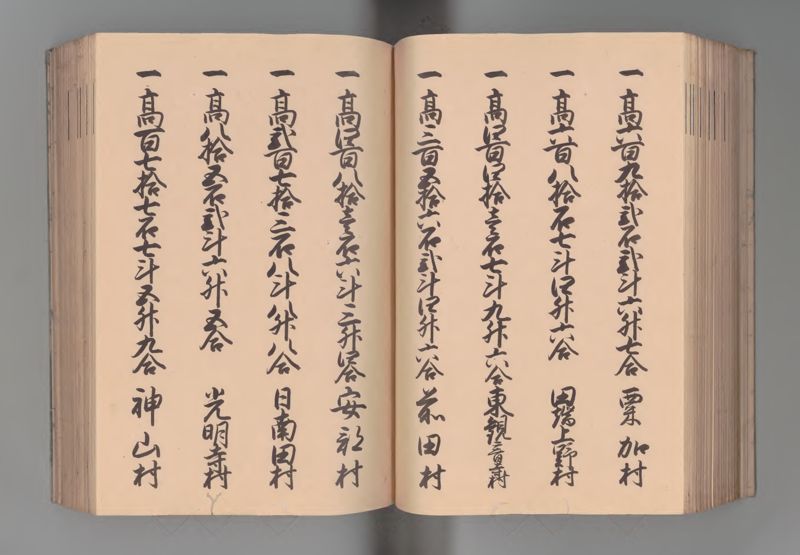 一 高六百九拾弐石弐斗六升七合 粟加村
一 高六百八拾石七斗四升六合 田幡上野村
一 高四百四拾壱石七斗九升六合 東観音寺村
一 高三百五拾六石弐斗四升六合 前田村
一 高四百八拾壱石六斗三升四合 安部村
一 高弐百七拾三石八斗八升八合 日南田村
一 高八拾五石弐斗六升五合 光明寺村
一 高百七拾七石七斗五升九合 神山村